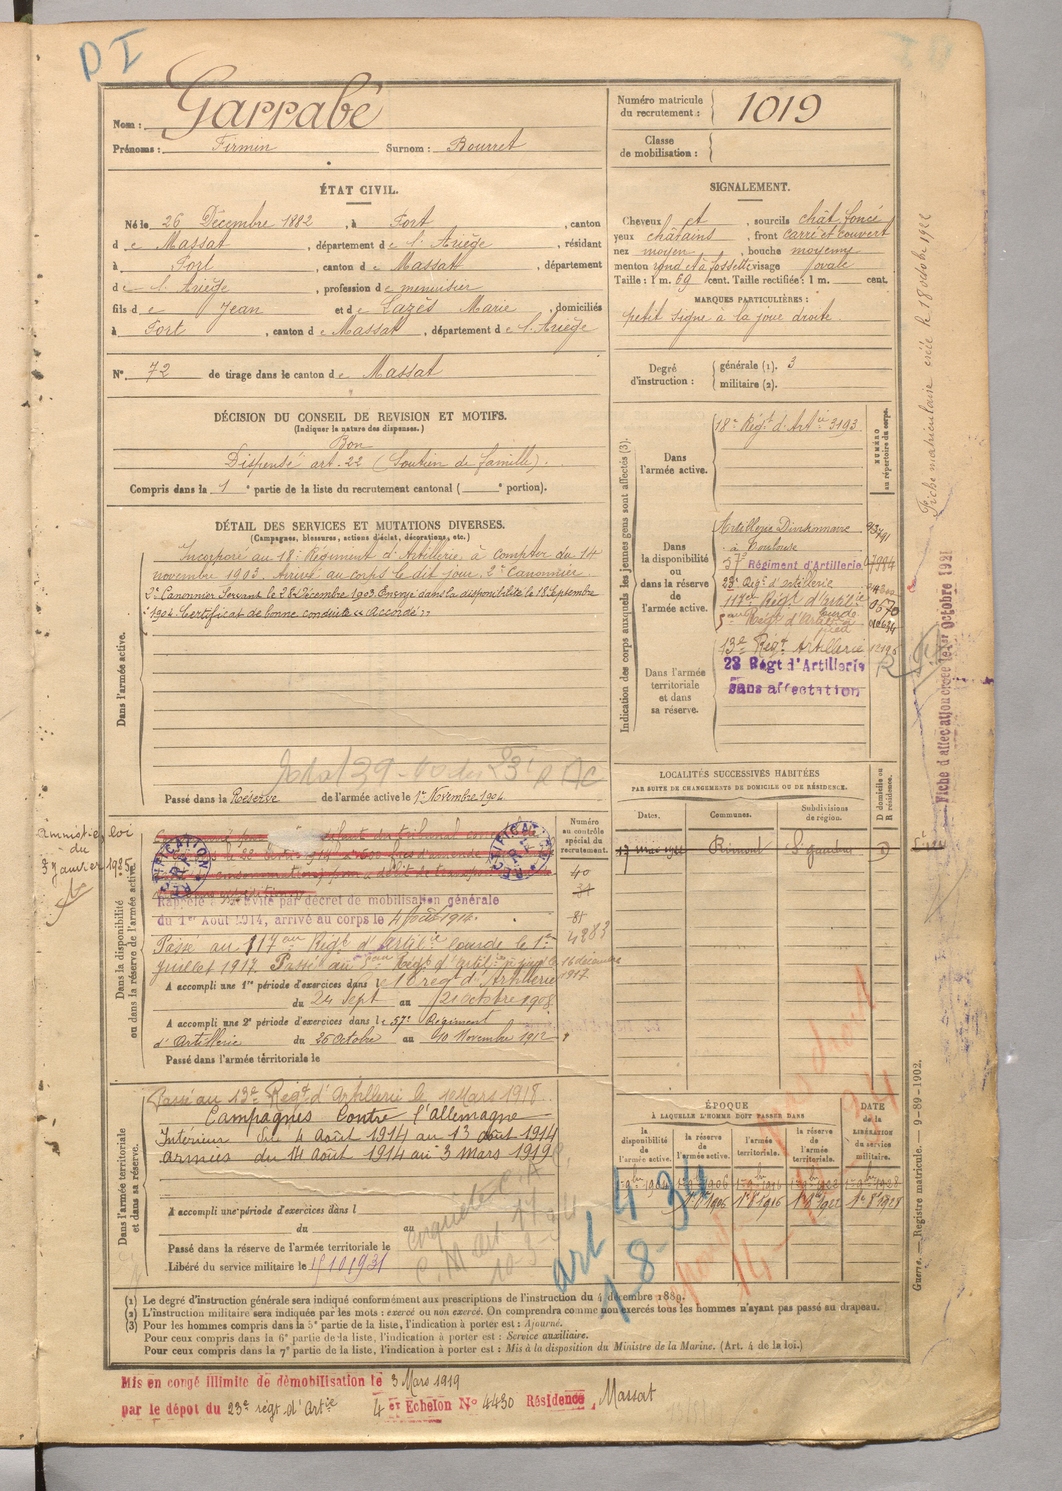 D I
Nom : Garrabé
Prénoms : Firmin Surnom : Bourret
Numéro matricule du recrutement : 1019
Classe de mobilisation :
ÉTAT CIVIL.
Né le 26 Décembre 1882, à Fort, canton
de Massat, département de l'Ariège, résidant
à Fort, canton de Massat, département
de l'Ariège, profession de menuisier
fils de Jean et de Lazès Marie, domiciliés
à Fort, canton de Massat, département de l'Ariège
N° 72 de tirage dans le canton de Massat
SIGNALEMENT.
Cheveux et, sourcils chât foncé
yeux châtains, front carré et couvert
nez moyen, bouche moyenne
menton rond et à fossette visage ovale
Taille : 1 m. 69 cent. Taille rectifiée : 1 m. cent.
MARQUES PARTICULIÈRES :
petit signe à la joue droite
Degré d'instruction : générale (1). 3
militaire (2).
DÉCISION DU CONSEIL DE REVISION ET MOTIFS.
(Indiquer la nature des dispenses.)
Bon
Dispensé art. 22 (Soutien de famille).
Compris dans la 1e partie de la liste du recrutement cantonal ( e portion).
DÉTAIL DES SERVICES ET MUTATIONS DIVERSES.
(Campagnes, blessures, actions d'éclat, décorations, etc.)
Dans l'armée active.
Incorporé au 18e Régiment d'Artillerie à compter du 14
novembre 1903. Arrivé au corps le dit jour. 2e Canonnier
Canonnier Servant le Décembre 1903. Envoyé dans la disponibilité le 18 Septembre
1904. Certificat de bonne conduite « Accordé »
Passé dans la Réserve de l'armée active le 1er Novembre 1904
Indication des corps auxquels les jeunes gens sont affectés (3).
NUMÉRO au répertoire du corps.
Dans l'armée active.
18e Régt d'Artie 3193
Dans la disponibilité ou dans la réserve de l'armée active.
Artillerie Divisionnaire
à Toulouse
57e Régiment d'Artillerie
23e Régt d'artillerie
117e Régt d'artie lourde
Régt d'artie à pied
Dans l'armée territoriale et dans sa réserve.
13e Régt Artillerie
23 Régt d'Artillerie
sans affectation
Fiche matriculaire créée le 8 octobre 1922
Fiche d'affectation créée le 1er Octobre 1921
LOCALITÉS SUCCESSIVES HABITÉES
PAR SUITE DE CHANGEMENTS DE DOMICILE OU DE RÉSIDENCE.
Dates. Communes. Subdivisions de région. D domicile ou R résidence.
17 mai Rimont St gaudens
Amnistié loi
du
3 Janvier 1925
Dans la disponibilité ou dans la réserve de l'armée active.
Numéro au contrôle spécial du recrutement.
RECTIFICATION
40
4283
Rappelé à l'activité par décret de mobilisation générale
du 1er Août 1914, arrivé au corps le 4 août 1914.
Passé au 117e Régt d'artie lourde le 1er
Juillet 1917. Passé au Régt d'artie à pied le 16 décembre 1917
A accompli une 1re période d'exercices dans le 18 régt d'Artillerie
du 24 Sept au 21 octobre 1908
A accompli une 2e période d'exercices dans le 57e Régiment
d'Artillerie du 25 Octobre au 10 Novembre 1912
Passé dans l'armée territoriale le
Dans l'armée territoriale et dans sa réserve.
Passé au 13e Régt d'Artillerie le 1 Mars 1918
Campagnes Contre l'allemagne
Intérieur du 4 Août 1914 au 13 août 1914
Armées du 14 Août 1914 au 3 mars 1919
A accompli une période d'exercices dans l
du au
Passé dans la réserve de l'armée territoriale le
Libéré du service militaire le
ÉPOQUE
À LAQUELLE L'HOMME DOIT PASSER DANS
la disponibilité de l'armée active. la réserve de l'armée active. l'armée territoriale. la réserve de l'armée territoriale. DATE de la LIBÉRATION du service militaire.
1er 9bre 1904 1er 9bre 1906 1er 9bre 1916
art 4 34
18
(1) Le degré d'instruction générale sera indiqué conformément aux prescriptions de l'instruction du 4 décembre 1889.
(2) L'instruction militaire sera indiquée par les mots : exercé ou non exercé. On comprendra comme non exercés tous les hommes n'ayant pas passé au drapeau.
(3) Pour les hommes compris dans la 5e partie de la liste, l'indication à porter est : Ajourné.
Pour ceux compris dans la 6e partie de la liste, l'indication à porter est : Service auxiliaire.
Pour ceux compris dans la 7e partie de la liste, l'indication à porter est : Mis à la disposition du Ministre de la Marine. (Art. 4 de la loi.)
Guerre. — Registre matricule. — 9-89-1902.
Mis en congé illimité de démobilisation le 3 Mars 1919
par le dépôt du 23e régt d'Artie 4 er Echelon N° 4430 Résidence, Massat